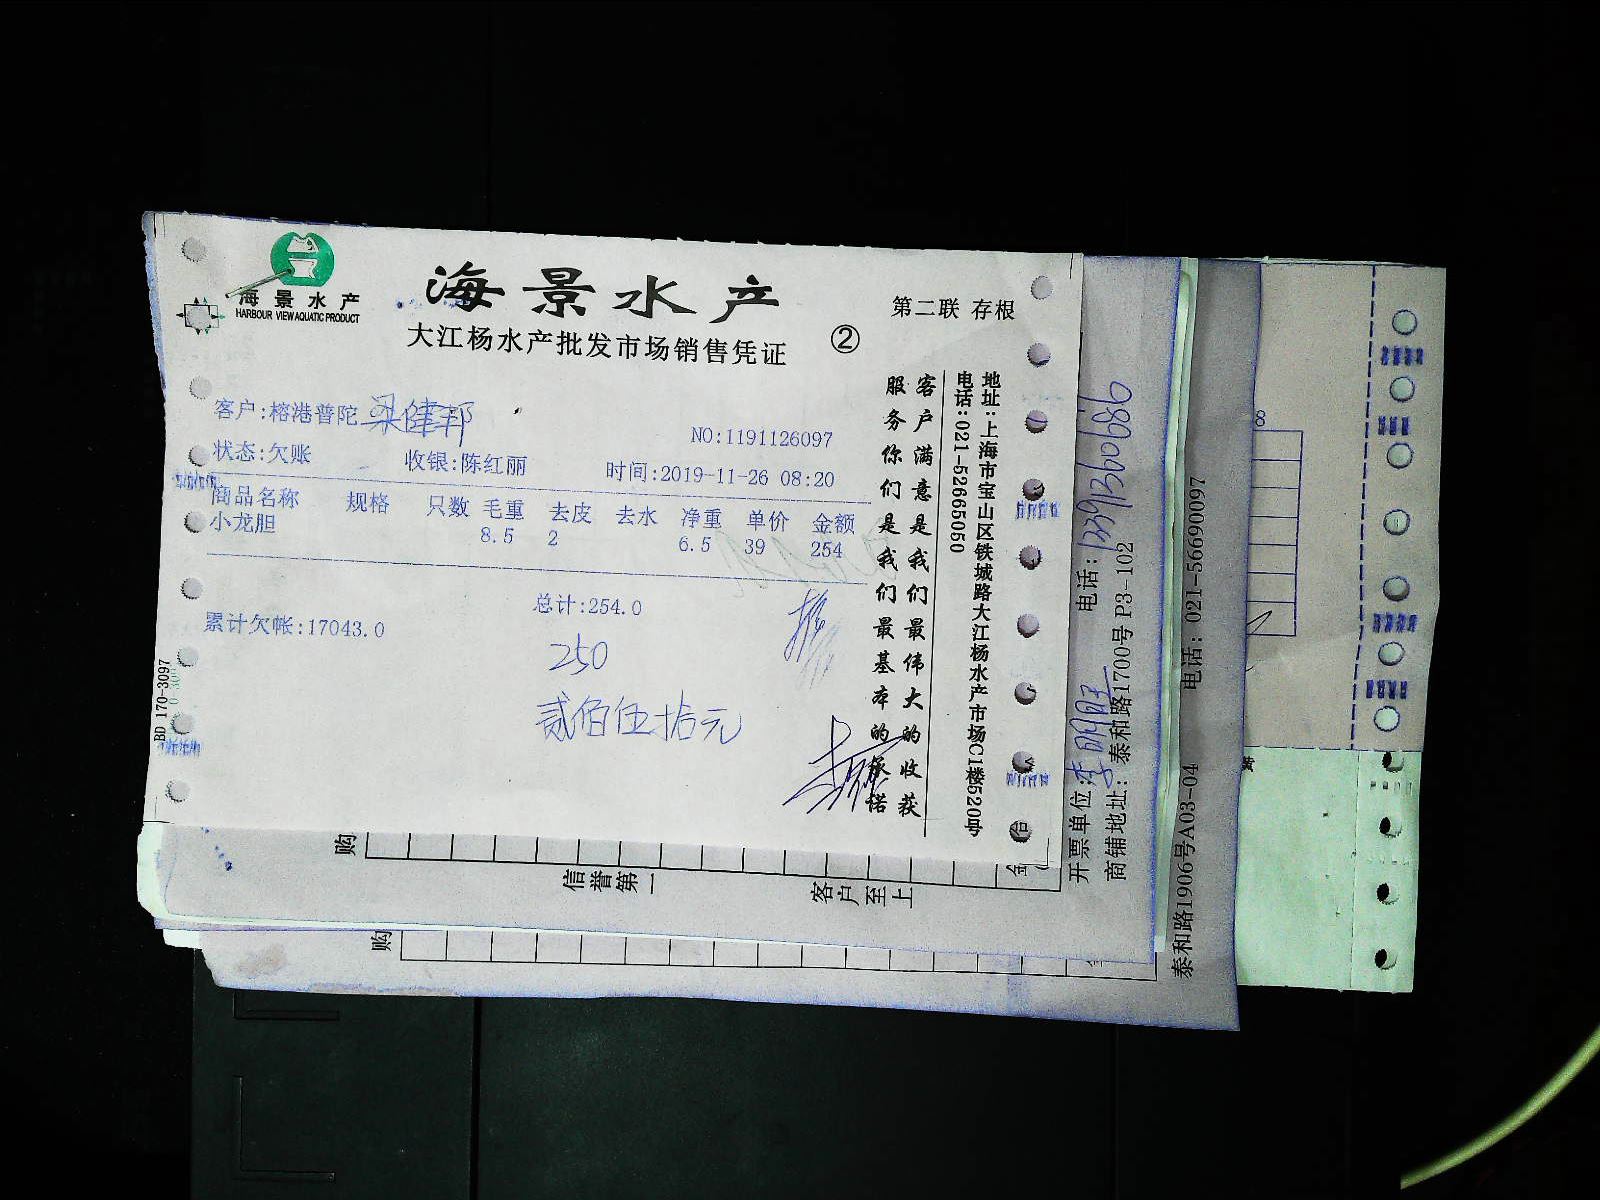 海景水产
HARBOUR VIEW AQUATIC PRODUCT
海景水产
大江杨水产批发市场销售凭证
②
第二联 存根
客户:榕港普陀 梁健邦
NO:1191126097
状态:欠账 收银:陈红丽 时间:2019-11-26 08:20
商品名称 规格 只数 毛重 去皮 去水 净重 单价 金额
小龙胆 8.5 2 6.5 39 254
总计:254.0
累计欠帐:17043.0
250
贰佰伍拾元
BD 170-3097
客户满意是我们最伟大的收获
服务你们是我们最基本的承诺
地址:上海市宝山区铁城路大江杨水产市场C1楼520号
电话:021-52665050
开票单位:李明旺 电话:13913090689
商铺地址: 泰和路1700号 P3-102
泰和路1906号A03-04 电话: 021-56690097
购
信誉第一 客户至上
购